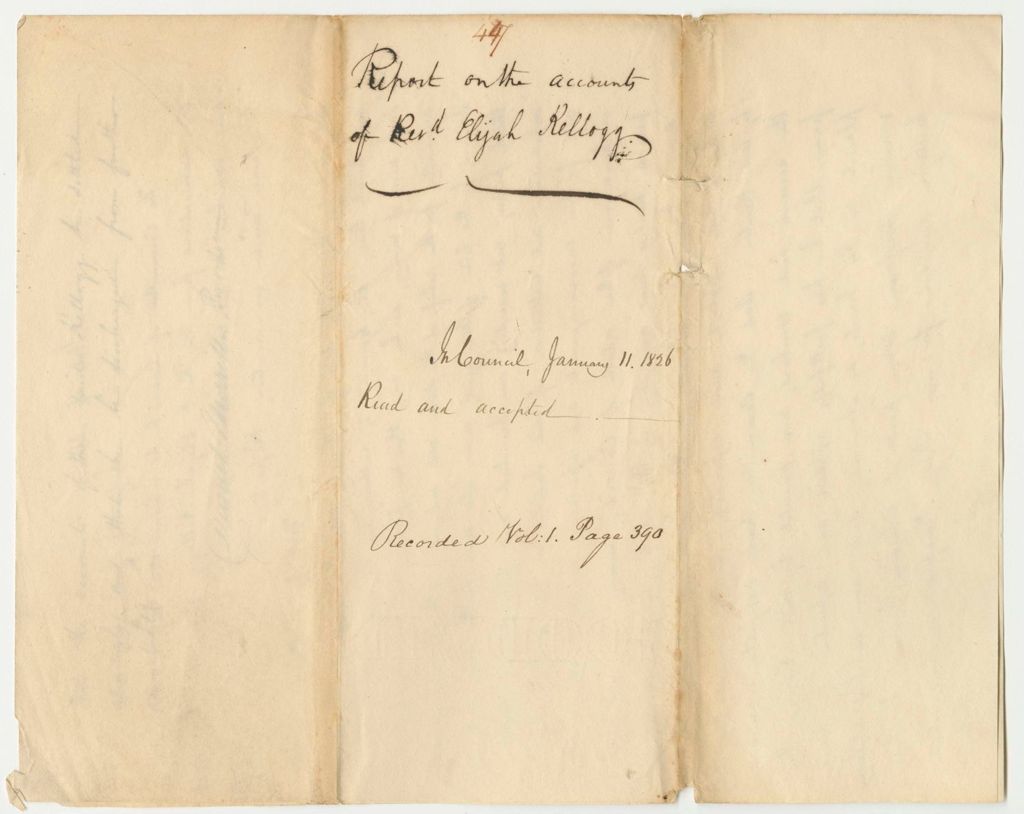 447
Report on the accounts
of Revd. Elijah Kellogg
In Council, January 11. 1826
Read and accepted
Recorded Vol: 1. Page 390